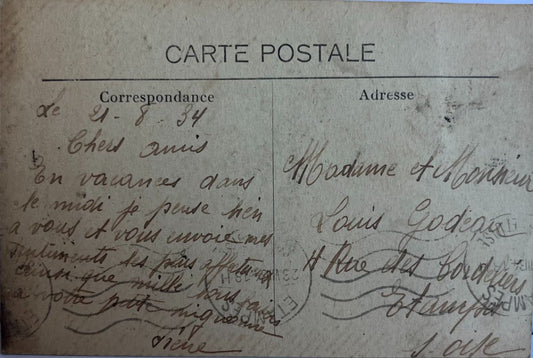 CARTE POSTALE
Correspondance
Adresse
Le 21-8-34
Chers amis
En vacances dans
le midi je pense bien
a vous et vous envoie mes
sentiments les plus affectueux
ainsi que mille bons baisers
a votre petite mignonne
Madame et Monsieur
Louis Godeau
4 Rue des Cordeliers
Etampes
S. et O.